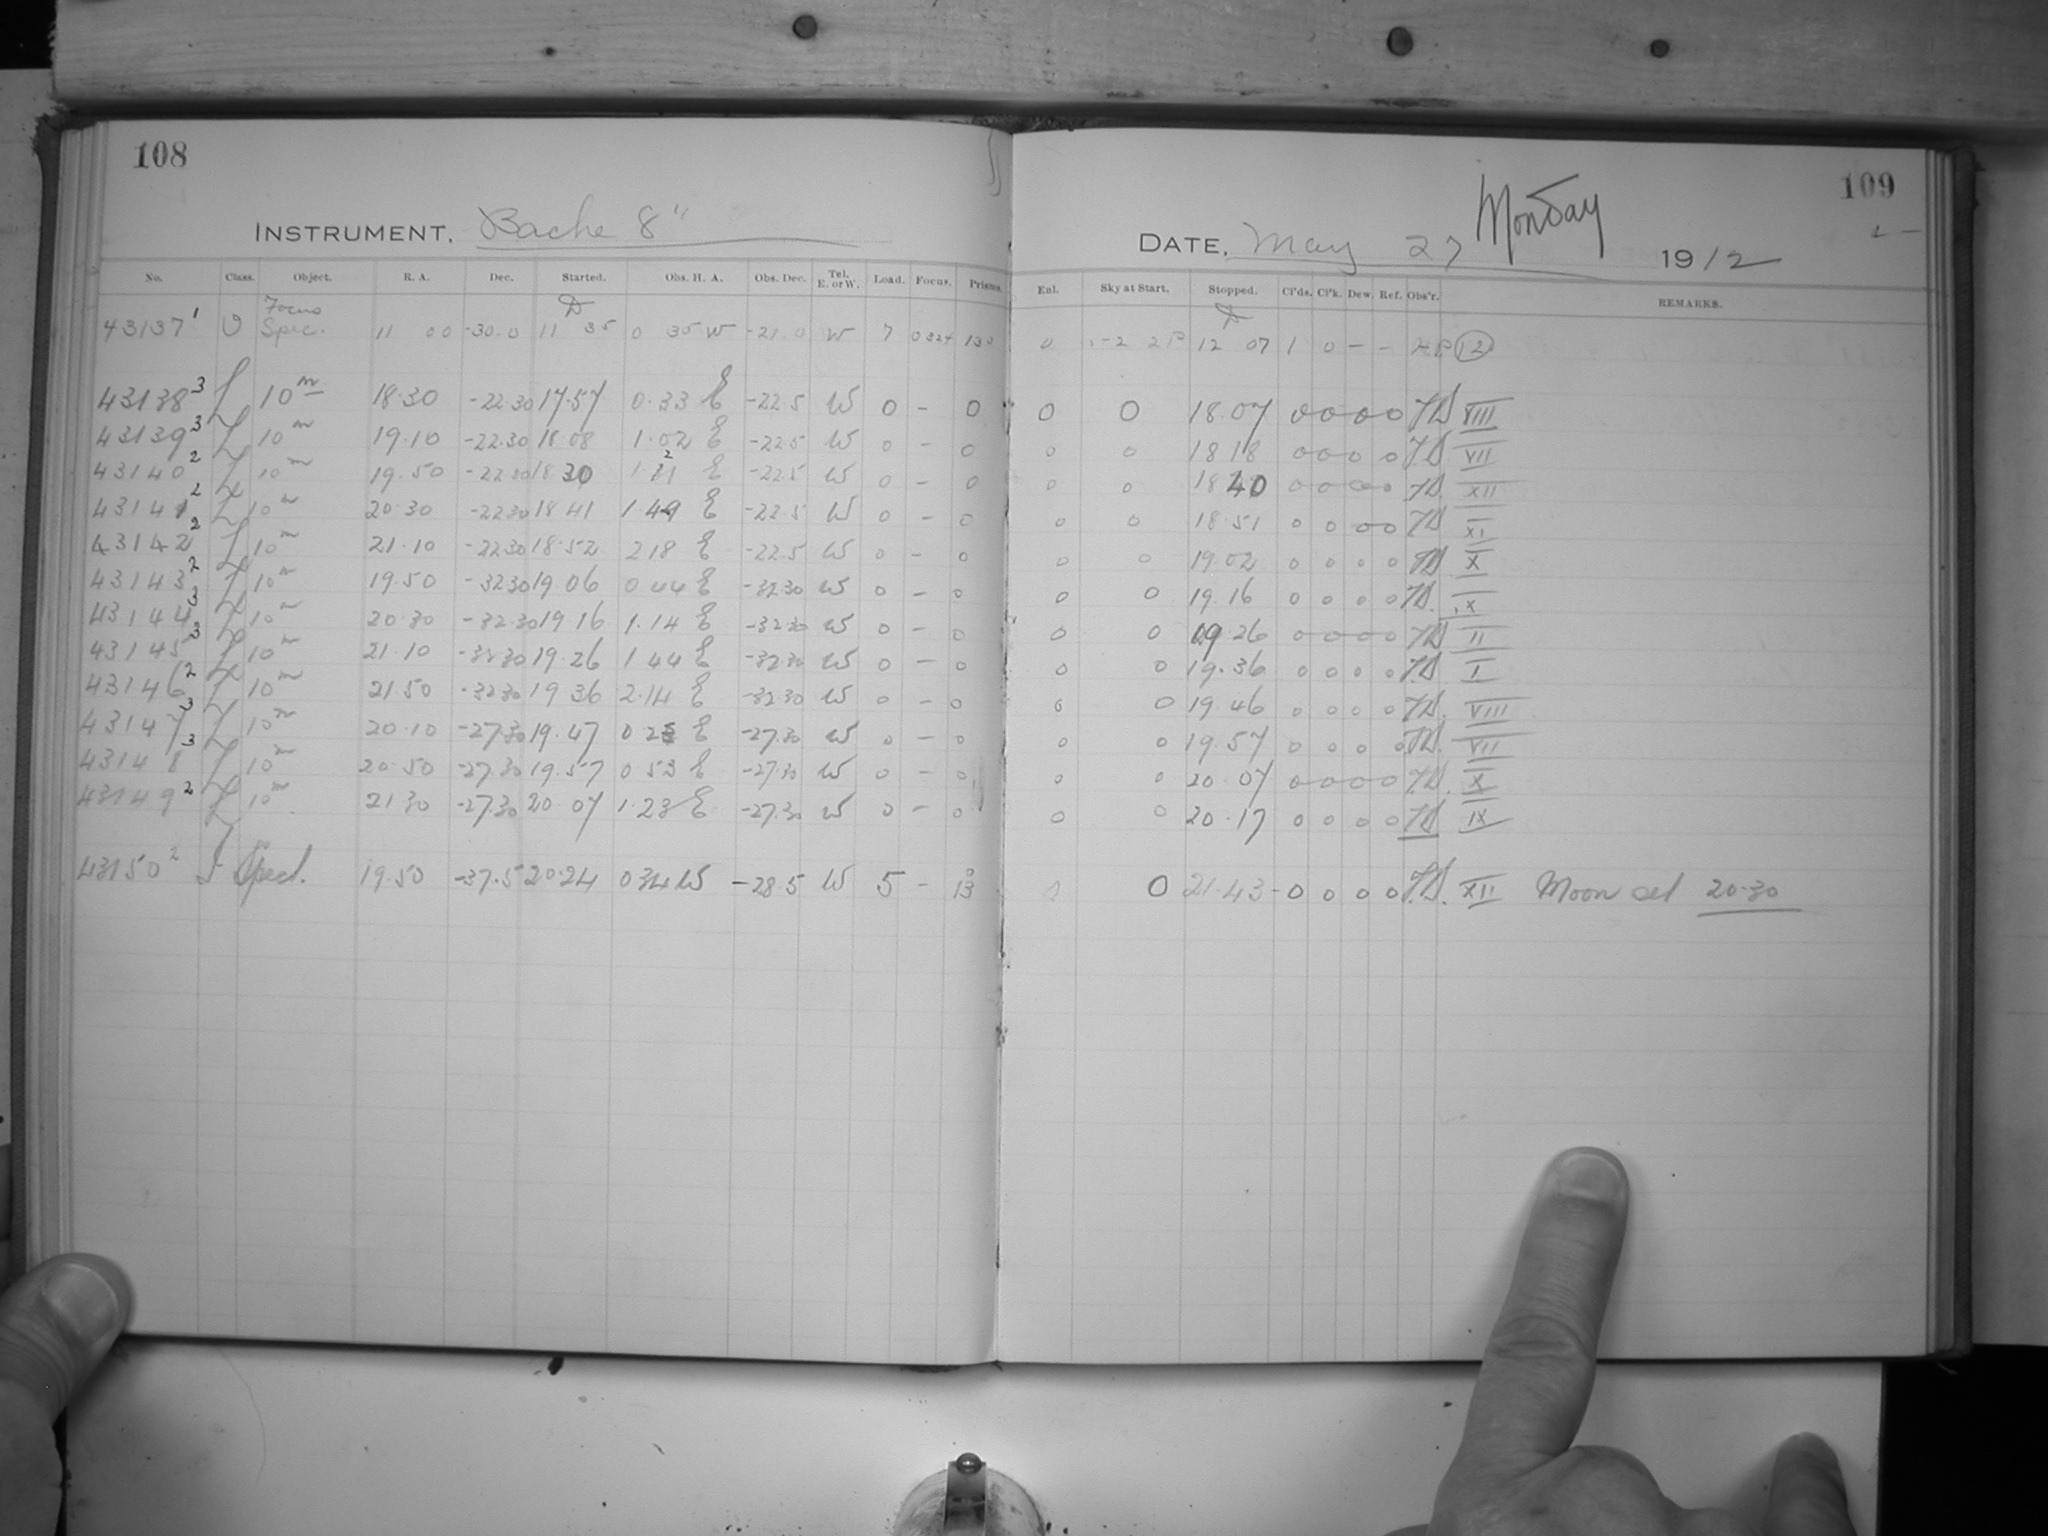 108
INSTRUMENT. Bache 8"
No. Class. Object. R. A. Dec. Started. Obs. H. A. Obs. Dec. Tel. E. or W. Load. Focus. Prisms.
Focus
43137 1 Spec. 11 00 -30.0 11 35 0 35 W -21.0 W 7 0324 130
43138 3 f 10m 18.30 -22.30 17.57 0.33 E -22.5 W 0 - 0
43139 3 f 10m 19.10 -22.30 18 08 1.02 E -22.5 W 0 - 0
43140 2 f 10m 19.50 -22 30 18 30 E -22.5 W 0 - 0
43141 2 f 10m 20.30 -22 30 18 41 1.49 E -22.5 W 0 - 0
43142 2 f 10m 21.10 -22 30 18.52 2 18 E -22.5 W 0 - 0
43143 2 f 10m 19.50 -32 30 19.06 0 44 E -32.30 W 0 - 0
43144 3 f 10m 20.30 -32.30 19 16 1.14 E -32.30 W 0 - 0
43145 3 f 10m 21.10 -32 30 19.26 1 44 E -32.30 W 0 - 0
43146 2 f 10m 21.50 -32 30 19 36 2.14 E -32.30 W 0 - 0
43147 3 f 10m 20.10 -27.30 19.47 E -27.30 W 0 - 0
43148 3 f 10m 20.50 -27.30 19.57 0 53 E -27.30 W 0 - 0
43149 2 f 10m 21 30 -27.30 20.07 1.23 E -27.30 W 0 - 0
43150 2 Spect. 19.50 -37.5 20.24 0 34 W -28.5 W 5 - 13
109
Monday
DATE, May 27 1912
Enl. Sky at Start. Stopped. Cl'ds. Cl'k. Dew. Ref. Obs'r. REMARKS.
0 12 07 1 0 - - 12
0 0 18.07 0 0 0 0 VIII
0 0 18 18 0 0 0 0 VII
0 0 18 40 0 0 0 0 XII
0 0 18.51 0 0 0 0 XI
0 0 19.02 0 0 0 0 X
0 0 19.16 0 0 0 0 IX
0 0 19.26 0 0 0 0 II
0 0 19.36 0 0 0 0 I
0 0 19.46 0 0 0 0 VIII
0 0 19.57 0 0 0 0 VII
0 0 20.07 0 0 0 0 X
0 0 20.17 0 0 0 0 IX
0 0 21.43 0 0 0 0 XII Moon set 20.30